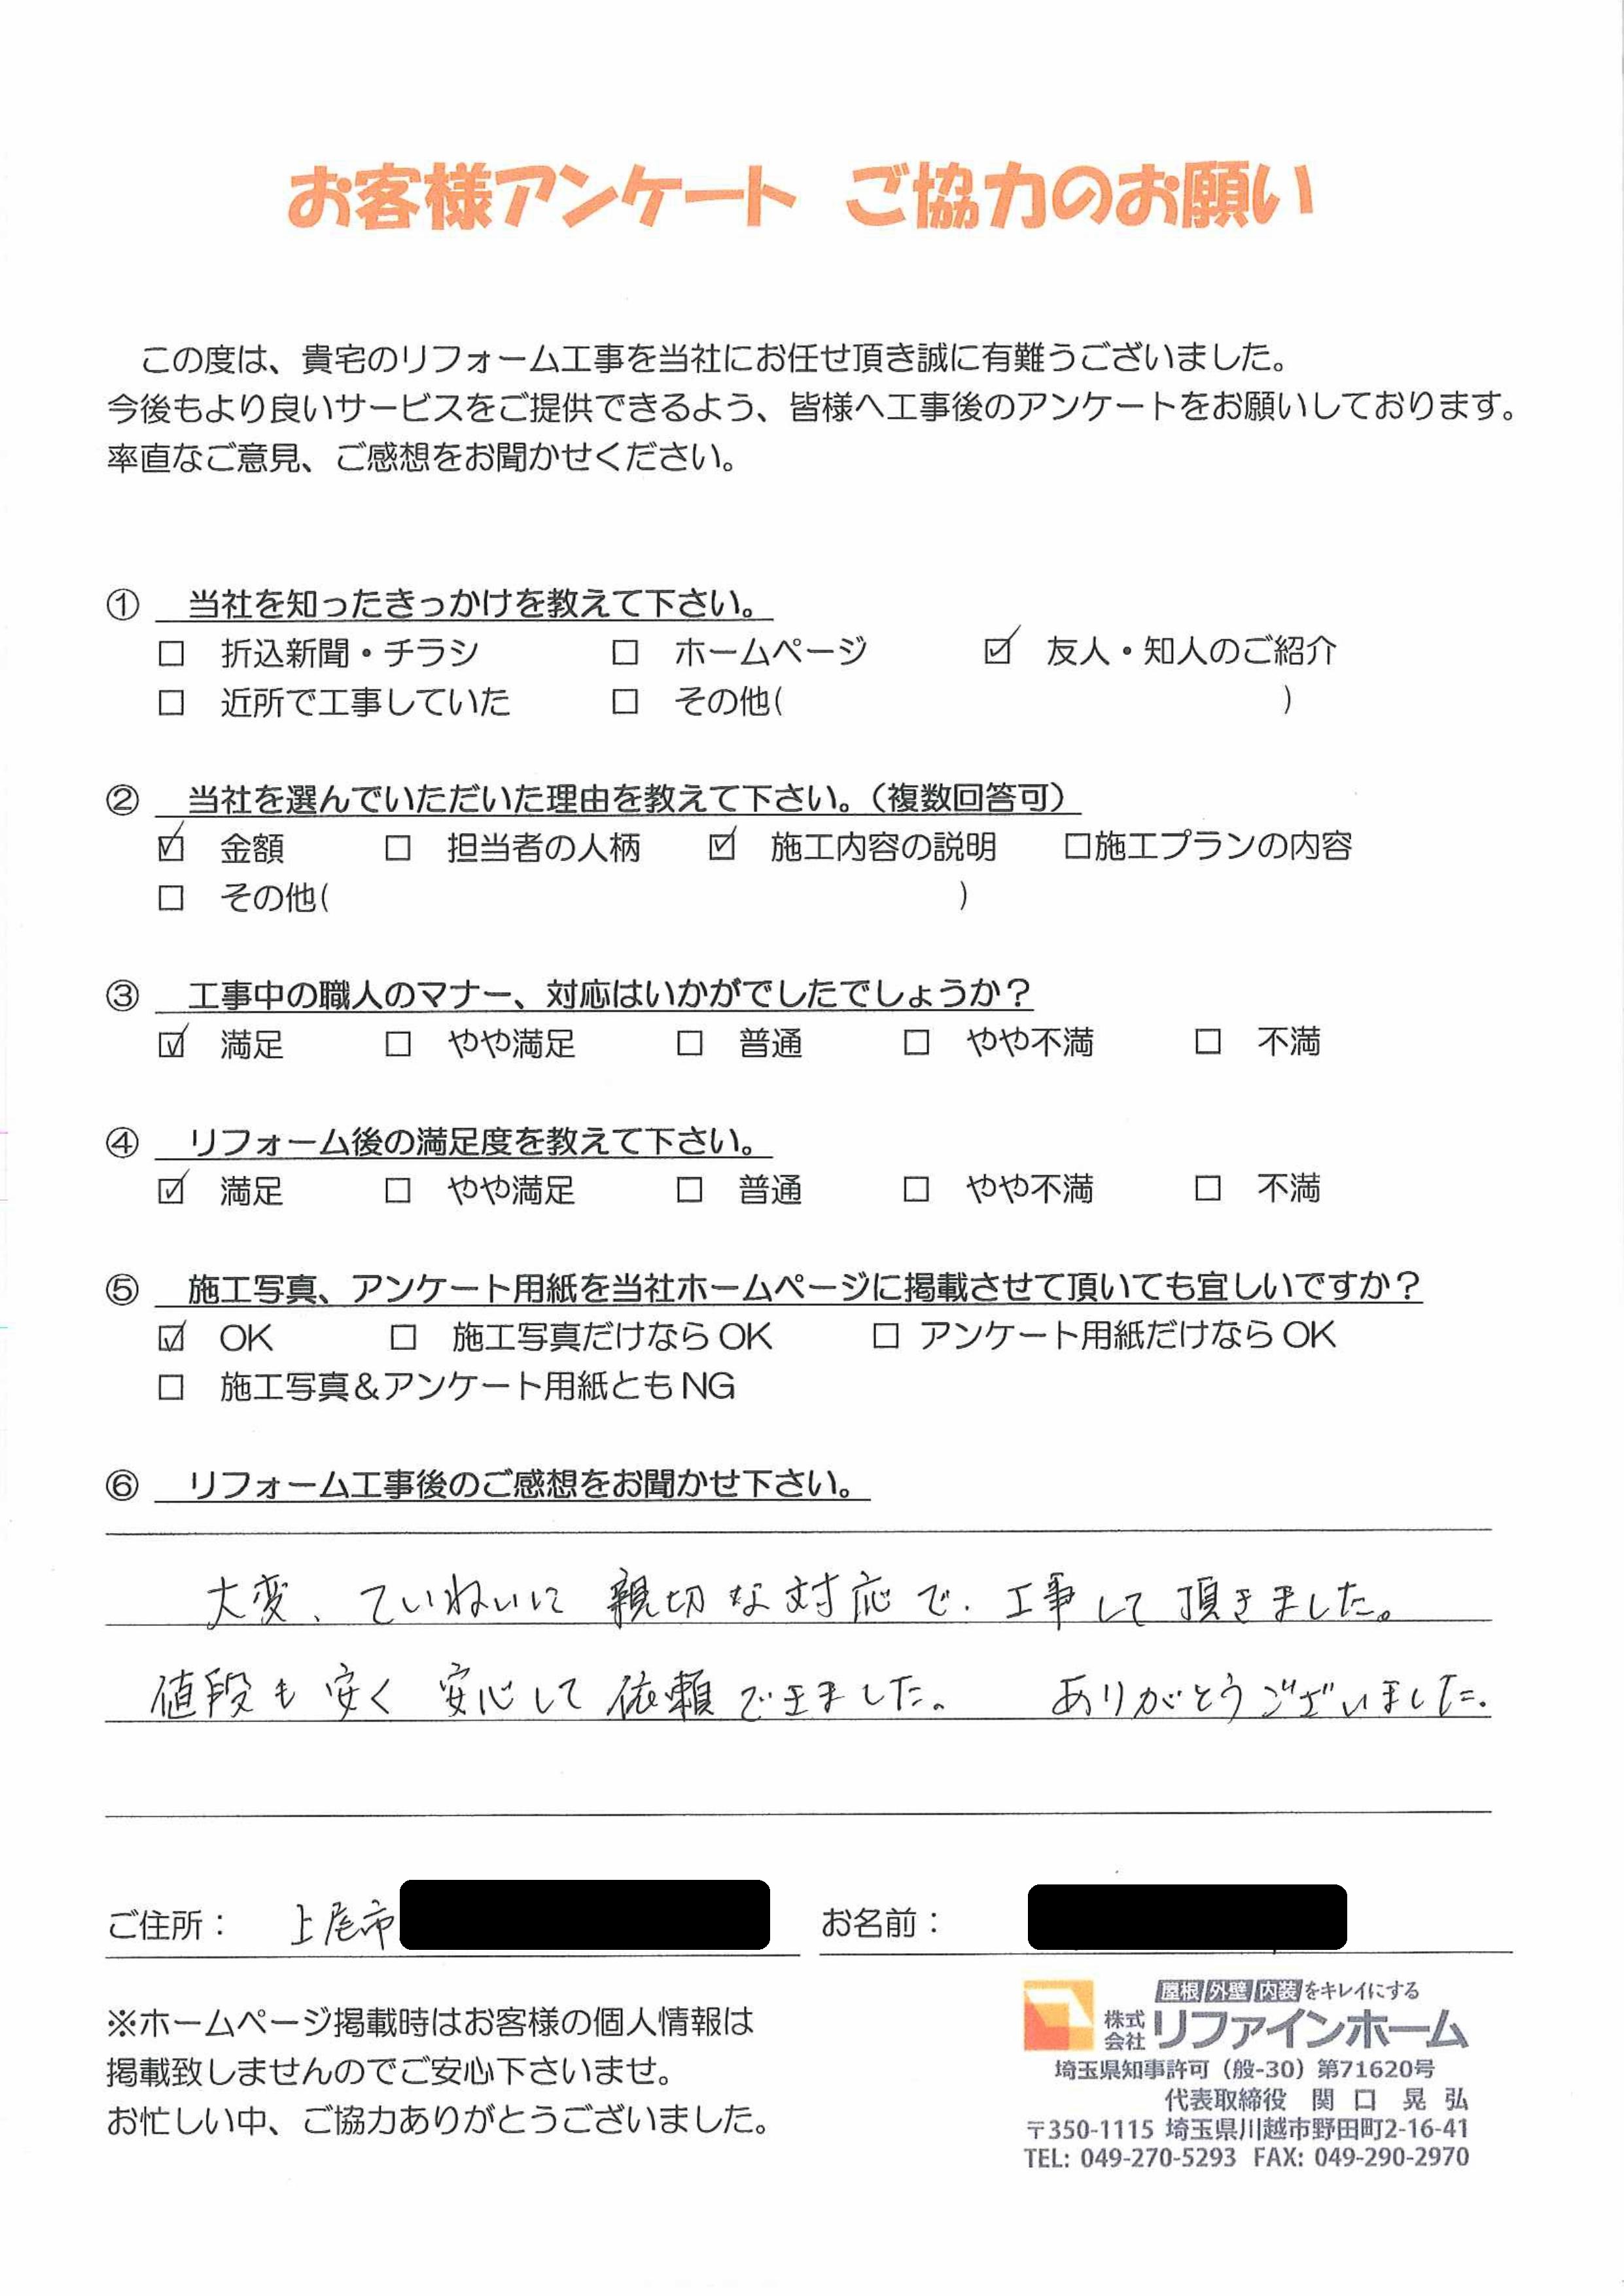 お客様アンケート ご協力のお願い
この度は、貴宅のリフォーム工事を当社にお任せ頂き誠に有難うございました。
今後もより良いサービスをご提供できるよう、皆様へ工事後のアンケートをお願いしております。
率直なご意見、ご感想をお聞かせください。
① 当社を知ったきっかけを教えて下さい。
□ 折込新聞・チラシ □ ホームページ ☑ 友人・知人のご紹介
□ 近所で工事していた □ その他( )
② 当社を選んでいただいた理由を教えて下さい。（複数回答可）
☑ 金額 □ 担当者の人柄 ☑ 施工内容の説明 □施工プランの内容
□ その他( )
③ 工事中の職人のマナー、対応はいかがでしたでしょうか？
☑ 満足 □ やや満足 □ 普通 □ やや不満 □ 不満
④ リフォーム後の満足度を教えて下さい。
☑ 満足 □ やや満足 □ 普通 □ やや不満 □ 不満
⑤ 施工写真、アンケート用紙を当社ホームページに掲載させて頂いても宜しいですか？
☑ OK □ 施工写真だけなら OK □ アンケート用紙だけなら OK
□ 施工写真＆アンケート用紙とも NG
⑥ リフォーム工事後のご感想をお聞かせ下さい。
大変、ていねいに 親切な対応で、工事して頂きました。
値段も安く 安心して依頼できました。 ありがとうございました。
ご住所： 上尾市 お名前：
※ホームページ掲載時はお客様の個人情報は
掲載致しませんのでご安心下さいませ。
お忙しい中、ご協力ありがとうございました。
屋根 外壁 内装をキレイにする
株式会社 リファインホーム
埼玉県知事許可（般-30）第71620号
代表取締役 関口 晃弘
〒350-1115 埼玉県川越市野田町2-16-41
TEL: 049-270-5293 FAX: 049-290-2970